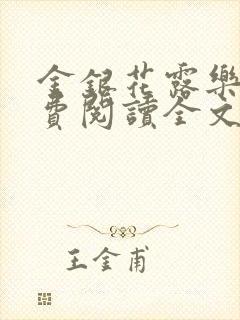 金銀花露樂
費閱讀全文
王金甫